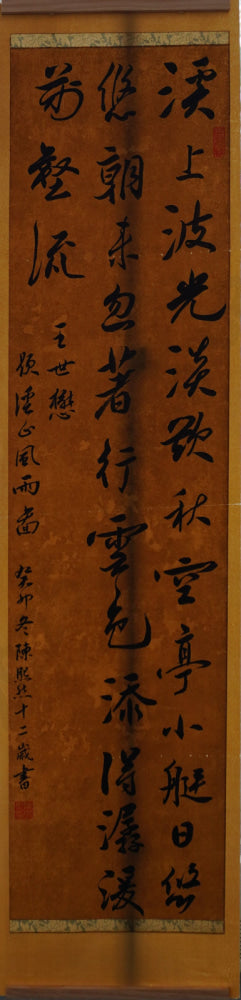 溪上波光淡欲秋空亭小艇日悠
悠朝来忽著行雲色添得潺湲
萬壑流
王世懋
題溪山風雨圖 癸卯冬陳熙然十二歲書